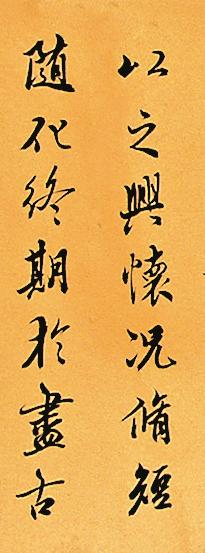 以之興懷况脩短
随化終期於盡古